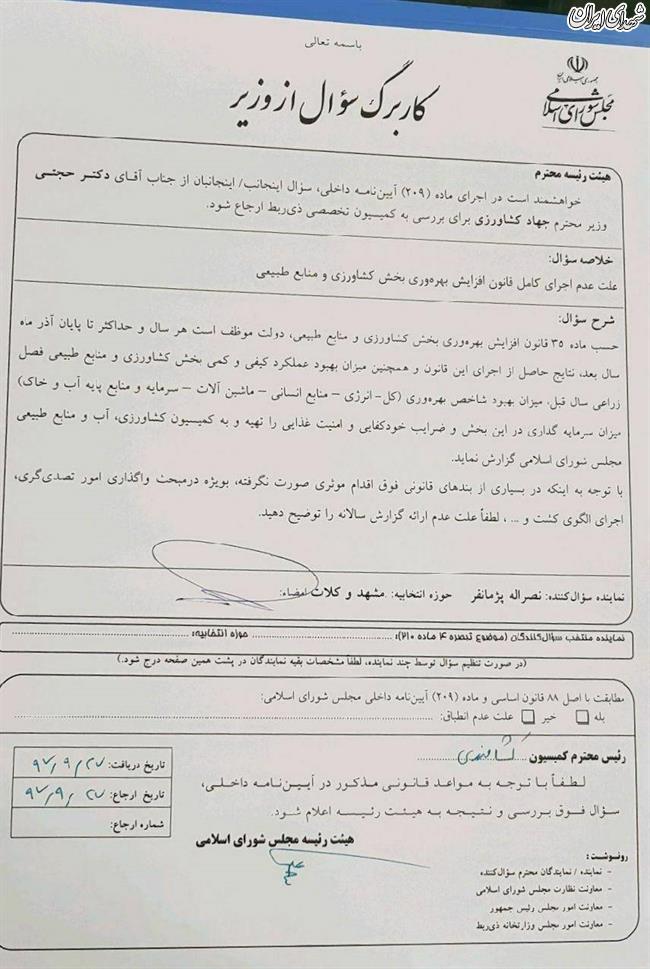 شهدای ایران
باسمه تعالی
جمهوری اسلامی ایران
مجلس شورای اسلامی
کاربرگ سؤال از وزیر
هیئت رئیسه محترم
خواهشمند است در اجرای ماده (۲۰۹) آیین‌نامه داخلی، سؤال اینجانب/ اینجانبان از جناب آقای دکتر حجتی
وزیر محترم جهاد کشاورزی برای بررسی به کمیسیون تخصصی ذی‌ربط ارجاع شود.
خلاصه سؤال:
علت عدم اجرای کامل قانون افزایش بهره‌وری بخش کشاورزی و منابع طبیعی
شرح سؤال:
حسب ماده ۳۵ قانون افزایش بهره‌وری بخش کشاورزی و منابع طبیعی، دولت موظف است هر سال و حداکثر تا پایان آذر ماه
سال بعد، نتایج حاصل از اجرای این قانون و همچنین میزان بهبود عملکرد کیفی و کمی بخش کشاورزی و منابع طبیعی فصل
زراعی سال قبل، میزان بهبود شاخص بهره‌وری (کل- انرژی – منابع انسانی – ماشین آلات – سرمایه و منابع پایه آب و خاک)
میزان سرمایه گذاری در این بخش و ضرایب خودکفایی و امنیت غذایی را تهیه و به کمیسیون کشاورزی، آب و منابع طبیعی
مجلس شورای اسلامی گزارش نماید.
با توجه به اینکه در بسیاری از بندهای قانونی فوق اقدام موثری صورت نگرفته، بویژه درمبحث واگذاری امور تصدی‌گری،
اجرای الگوی کشت و ... ، لطفاً علت عدم ارائه گزارش سالانه را توضیح دهید.
نماینده سؤال‌کننده: نصراله پژمانفر حوزه انتخابیه: .مشهد و کلات امضاء:
نماینده منتخب سؤال‌کنندگان (موضوع تبصره ۴ ماده ۲۱۰): حوزه انتخابیه:
(در صورت تنظیم سؤال توسط چند نماینده، لطفاً مشخصات بقیه نمایندگان در پشت همین صفحه درج شود.)
مطابقت با اصل ۸۸ قانون اساسی و ماده (۲۰۹) آیین‌نامه داخلی مجلس شورای اسلامی:
بله خیر علت عدم انطباق:
رئیس محترم کمیسیون کشاورزی
لطفاً با توجه به مواعد قانونی مذکور در آیین‌نامه داخلی،
سؤال فوق بررسی و نتیجه به هیئت رئیسه اعلام شود.
هیئت رئیسه مجلس شورای اسلامی
تاریخ دریافت: ۹۷/۹/۲۷
تاریخ ارجاع: ۹۷/۹/۲۷
شماره ارجاع:
رونوشت:
- نماینده / نمایندگان محترم سؤال‌کننده
- معاونت نظارت مجلس شورای اسلامی
- معاونت امور مجلس رئیس جمهور
- معاونت امور مجلس وزارتخانه ذی‌ربط